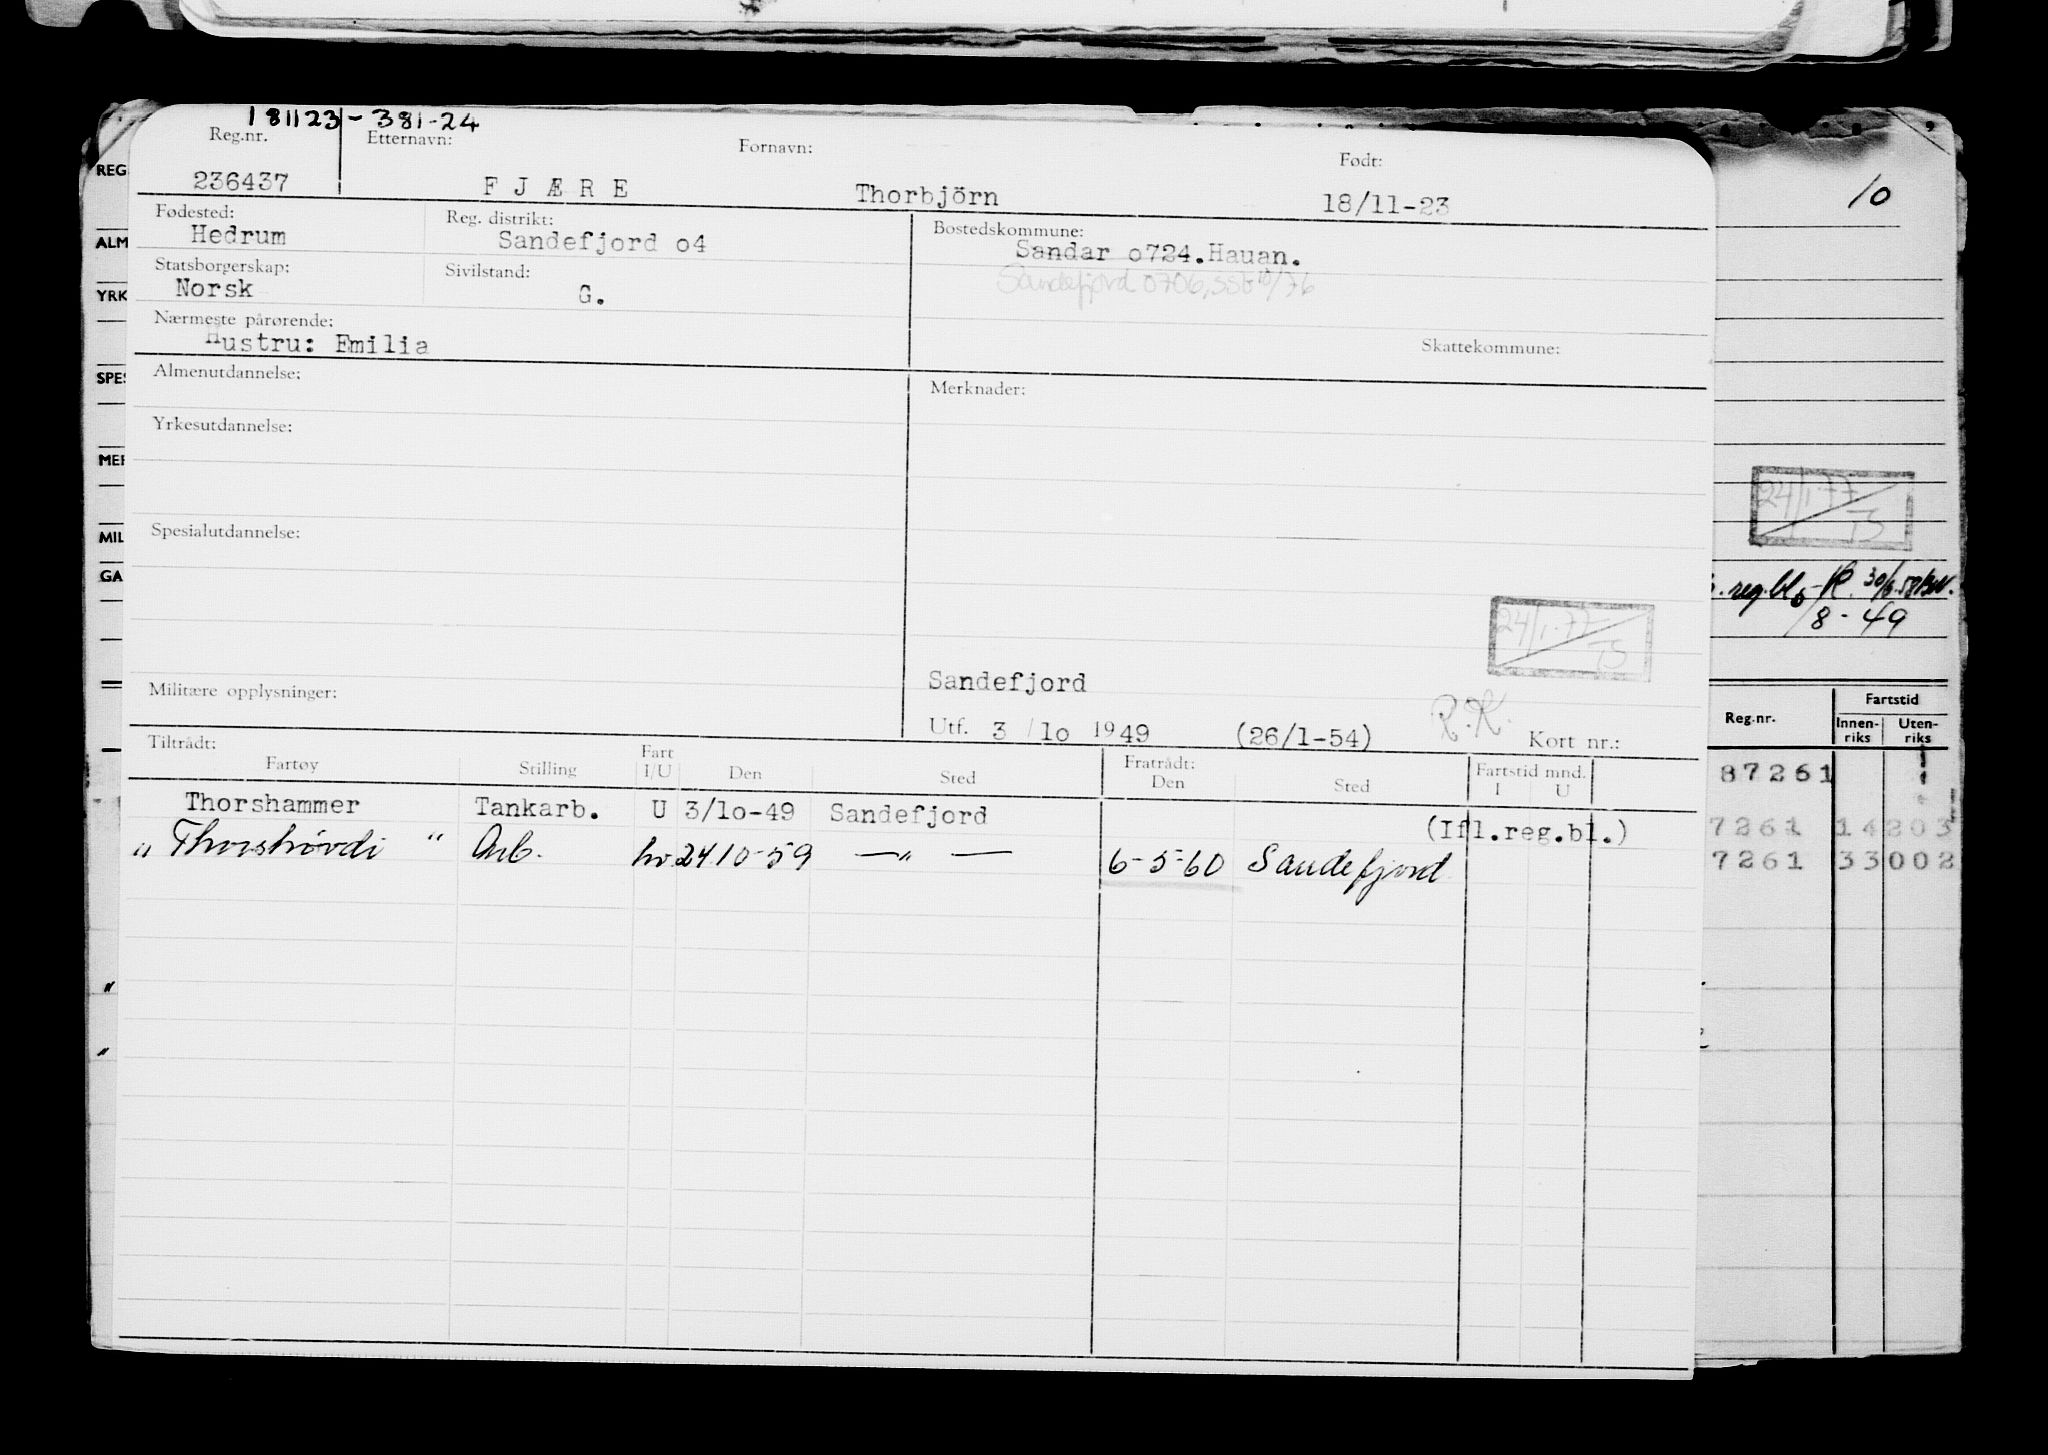 181123-381-24
Reg.nr. Etternavn: Fornavn: Født:
236437 FJÆRE Thorbjörn 18/11-23
Fødested: Reg. distrikt: Bostedskommune:
Hedrum Sandefjord o4 Sandar o724.Hauan.
Statsborgerskap: Sivilstand: Sandefjord 0706,
Norsk G.
Nærmeste pårørende: Skattekommune:
Hustru: Emilia
Almenutdannelse: Merknader:
Yrkesutdannelse:
Spesialutdannelse:
24/1-77
TS
Sandefjord
Militære opplysninger: R.K.
Utf. 3/lo 1949 (26/1-54) Kort nr.:
Tiltrådt: Fratrådt:
Fartøy Stilling Fart I/U Den Sted Den Sted Fartstid mnd. I U
Thorshammer Tankarb. U 3/lo-49 Sandefjord (Ifl.reg.bl.)
" Thorshøvdi " Arb. hv 24.10-59 —"— 6-5-60 Sandefjord
REG
ALM
YRK
SPES
MER
MIL
GA
10
24/1-77
TS
reg.bl.
8-49
Reg.nr. Fartstid
Innen-riks Uten-riks
87261
7261 14203
7261 33002